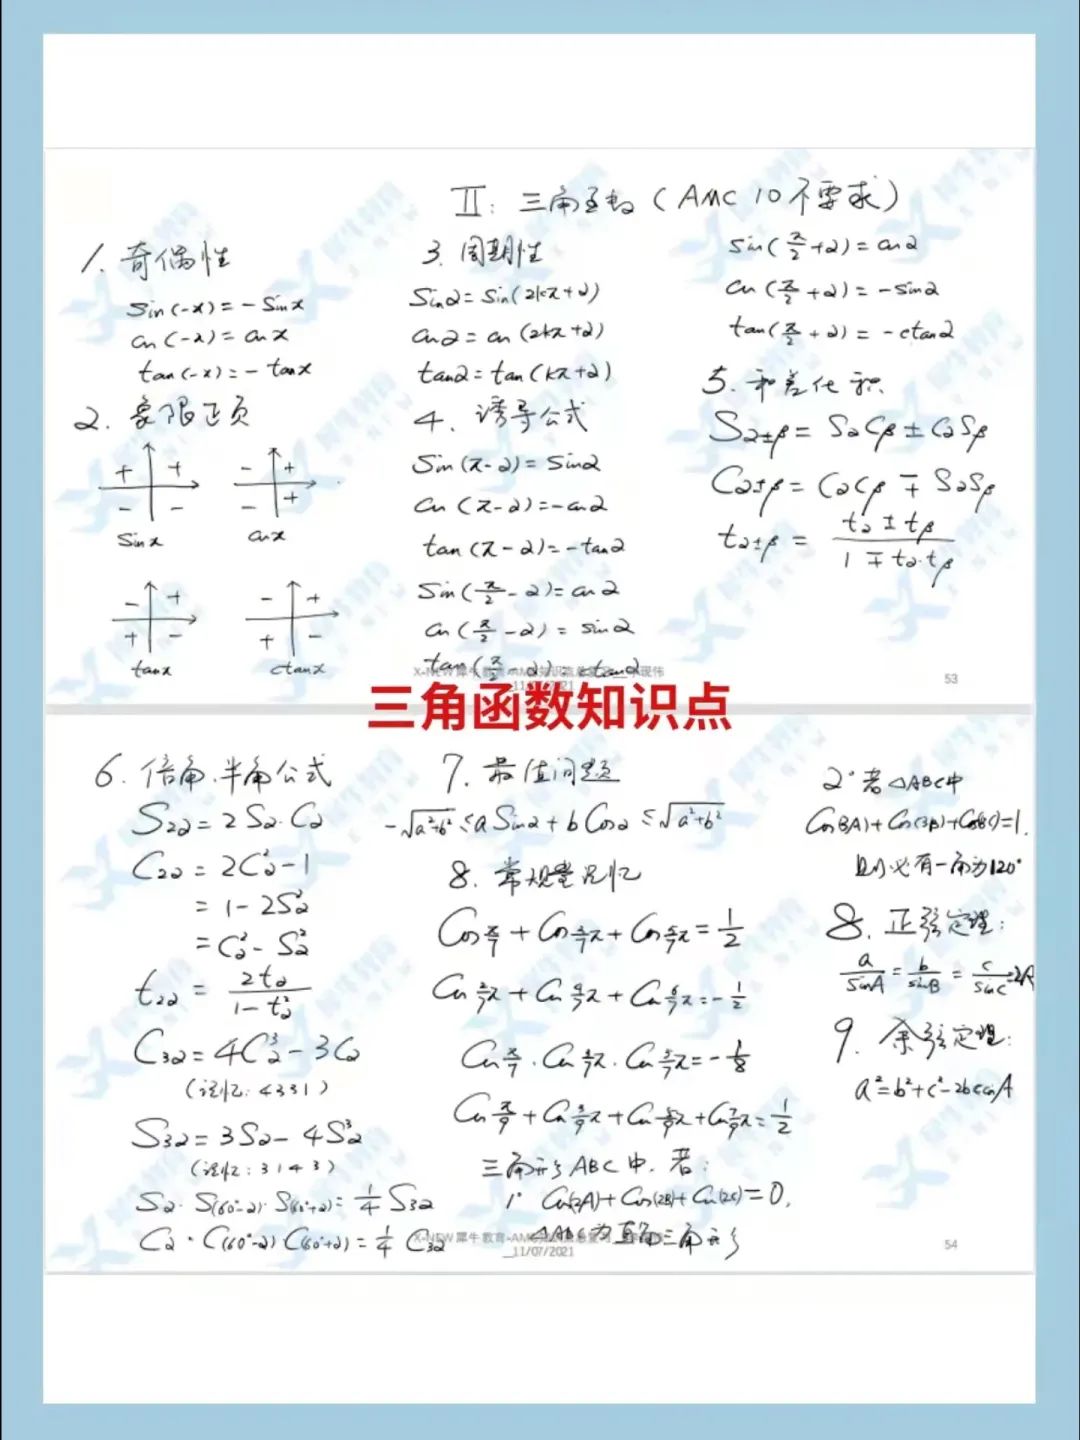 II: 三角函数 (AMC 10 不要求)
1. 奇偶性
sin(-x) = -sinx
cos(-x) = cosx
tan(-x) = -tanx
2. 象限正负
+ +
- -
sinx
- +
- +
cosx
- +
+ -
tanx
- +
+ -
ctanx
3. 周期性
sinα = sin(2kπ+α)
cosα = cos(2kπ+α)
tanα = tan(kπ+α)
4. 诱导公式
sin(π-α) = sinα
cos(π-α) = -cosα
tan(π-α) = -tanα
sin(π/2-α) = cosα
cos(π/2-α) = sinα
tan(π/2-α) = ctanα
sin(π/2+α) = cosα
cos(π/2+α) = -sinα
tan(π/2+α) = -ctanα
5. 和差化积
Sα±β = SαCβ ± CαSβ
Cα±β = CαCβ ∓ SαSβ
tα±β = (tα ± tβ)/(1 ∓ tα·tβ)
11/07/2021
53
三角函数知识点
6. 倍角、半角公式
S2α = 2Sα·Cα
C2α = 2Cα² - 1
= 1 - 2Sα²
= Cα² - Sα²
t2α = 2tα/(1 - tα²)
C3α = 4Cα³ - 3Cα
(记忆: 4331)
S3α = 3Sα - 4Sα³
(记忆: 3143)
Sα·S(60°-α)·S(60°+α) = 1/4 S3α
Cα·C(60°-α)C(60°+α) = 1/4 C3α
7. 最值问题
-√(a²+b²) ≤ a Sinα + b Cosα ≤ √(a²+b²)
8. 常规量记忆
Cos π/7 + Cos 3/7π + Cos 5/7π = 1/2
Cos 2/7π + Cos 4/7π + Cos 6/7π = -1/2
Cos π/7 · Cos 3/7π · Cos 5/7π = -1/8
Cos π/9 + Cos 3/9π + Cos 5/9π + Cos 7/9π = 1/2
三角形ABC中, 若:
1° Cos(2A)+Cos(2B)+Cos(2C) = 0,
△ABC为直角三角形
X-NEW犀牛教育-AMC
11/07/2021
2° 若△ABC中
Cos(3A)+Cos(3B)+Cos(3C)=1,
则必有一角为120°
8. 正弦定理:
a/sinA = b/sinB = c/sinC = 2R
9. 余弦定理:
a² = b²+c²-2bccosA
54